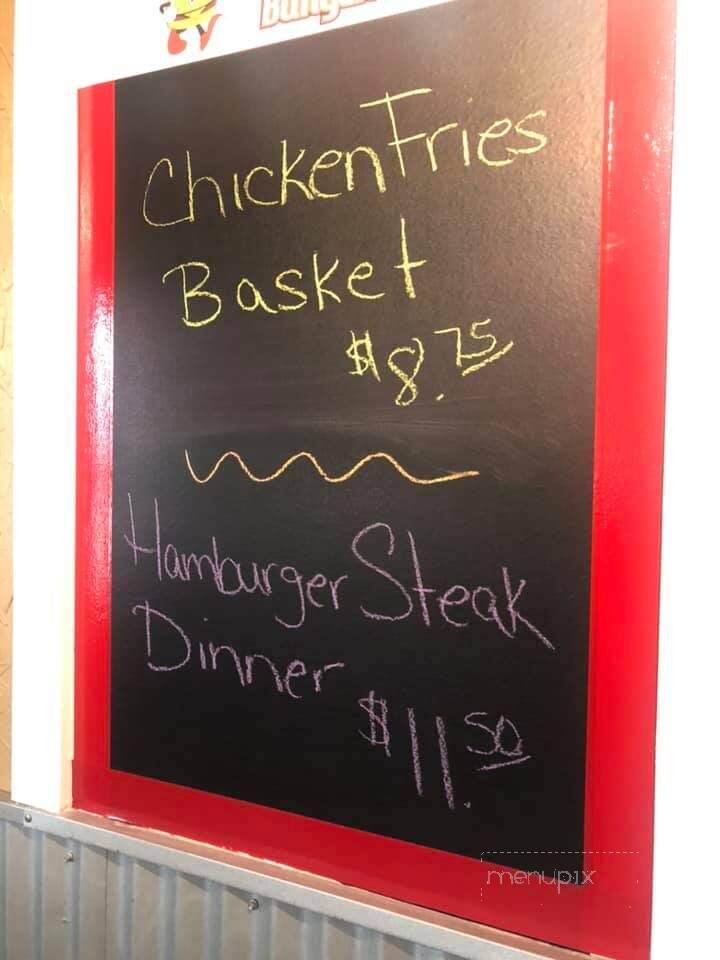 Chicken Fries
Basket
$8.75
Hamburger Steak
Dinner
$11.50
menupix